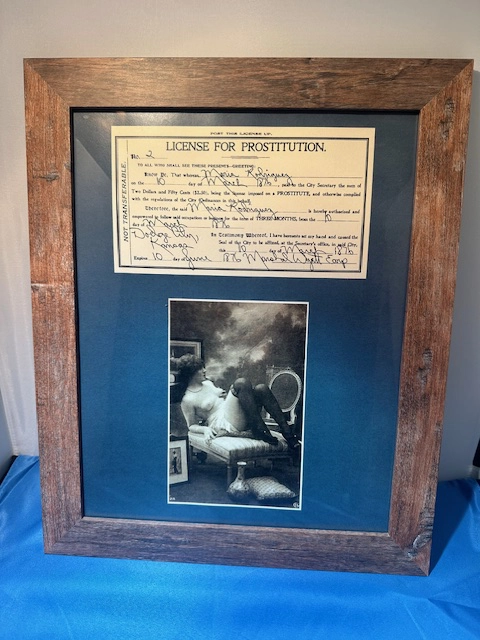 POST THIS LICENSE UP.
LICENSE FOR PROSTITUTION.
No. 2
TO ALL WHO SHALL SEE THESE PRESENTS—GREETING:
Know Ye, That whereas, Maria Rodriguez
on the 10 day of March 1876, paid to the City Secretary the sum of
Two Dollars and Fifty Cents ($2.50), being the license imposed on a PROSTITUTE, and otherwise complied
with the regulations of the City Ordinances in this behalf.
Therefore, the said Maria Rodriguez is hereby authorized and
empowered to follow said occupation or business for the term of THREE MONTHS, from the 10
day of March 1876
Dodge City
Kansas
In Testimony Whereof, I have hereunto set my hand and caused the
Seal of the City to be affixed, at the Secretary's office, in said City,
10 day of March 1876
Expires 10 day of June 1876 Marshal Wyatt Earp
NOT TRANSFERABLE.